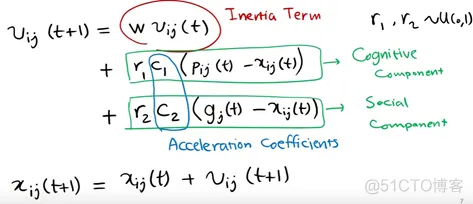 v_ij (t+1) = w v_ij (t) Inertia Term r_1, r_2 ~ U(0,1)
+ r_1 c_1 (p_ij (t) − x_ij (t)) → Cognitive Component
+ r_2 C_2 (g_j (t) − x_ij (t)) → Social Component
Acceleration Coefficients
x_ij (t+1) = x_ij (t) + v_ij (t+1)
@51CTO博客
7